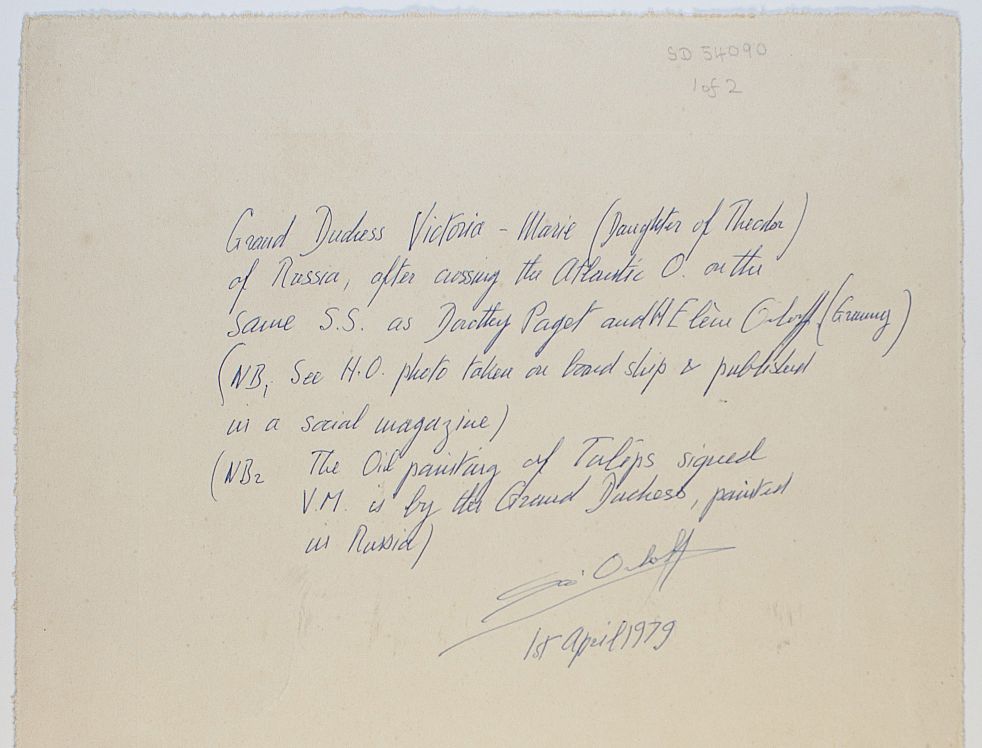 SD 54090
1 of 2
Grand Duchess Victoria - Marie (Daughter of Theodor)
of Russia, after crossing the Atlantic O. on the
same S.S. as Dorothy Paget and H Elène Orloff (Granny)
(NB1 See H.O. photo taken on board ship & published
in a social magazine)
(NB2 The Oil painting of Tulips signed
V.M. is by the Grand Duchess, painted
in Russia)
Orloff
1st April 1979